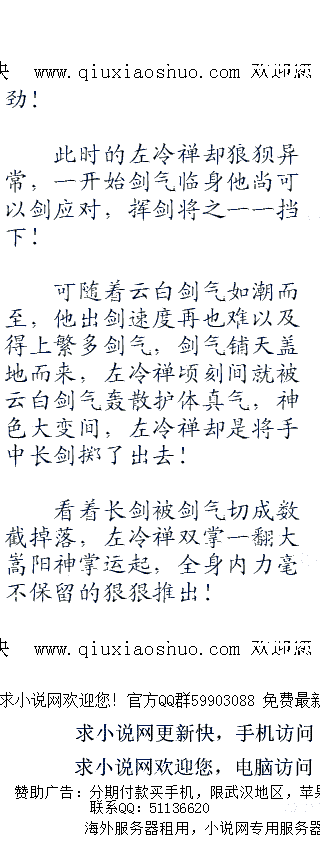 快 www.qiuxiaoshuo.com 欢迎您
劲！
此时的左冷禅却狼狈异
常，一开始剑气临身他尚可
以剑应对，挥剑将之一一挡
下！
可随着云白剑气如潮而
至，他出剑速度再也难以及
得上繁多剑气，剑气铺天盖
地而来，左冷禅顷刻间就被
云白剑气轰散护体真气，神
色大变间，左冷禅却是将手
中长剑掷了出去！
看着长剑被剑气切成数
截掉落，左冷禅双掌一翻大
嵩阳神掌运起，全身内力毫
不保留的狠狠推出！
快 www.qiuxiaoshuo.com 欢迎您
求小说网欢迎您！官方QQ群59903088 免费最新
求小说网更新快，手机访问
求小说网欢迎您，电脑访问
赞助广告：分期付款买手机，限武汉地区，苹果
联系QQ：51136620
海外服务器租用，小说网专用服务器